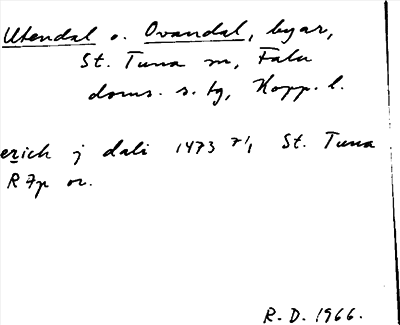 Utendal o. Ovandal, byar,
St. Tuna sn, Falu
doms. s. tg, Kopp. l.
erich j dali 1473 7/1 St. Tuna
R Fp or.
R. D. 1966.